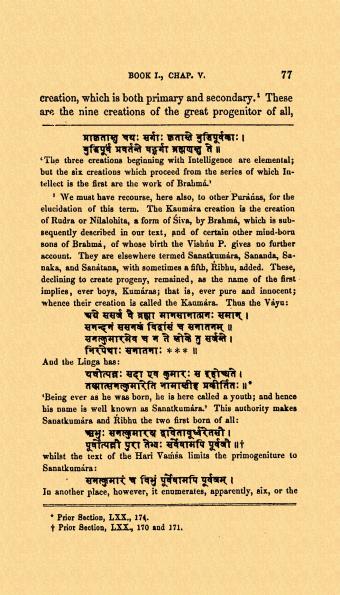 BOOK I., CHAP. V. 77
creation, which is both primary and secondary.¹ These
are the nine creations of the great progenitor of all,
प्राकृतास्तु त्रयः सर्गाः कृतास्ते बुद्धिपूर्वकाः ।
बुद्धिपूर्वं प्रवर्तन्ते षड्सर्गा ब्रह्मणस्तु ते ॥
'The three creations beginning with Intelligence are elemental;
but the six creations which proceed from the series of which In-
tellect is the first are the work of Brahmá.'
¹ We must have recourse, here also, to other Puráńas, for the
elucidation of this term. The Kaumára creation is the creation
of Rudra or Nílalohita, a form of Śiva, by Brahmá, which is sub-
sequently described in our text, and of certain other mind-born
sons of Brahmá, of whose birth the Vishńu P. gives no further
account. They are elsewhere termed Sanatkumára, Sananda, Sa-
naka, and Sanátana, with sometimes a fifth, Ŕibhu, added. These,
declining to create progeny, remained, as the name of the first
implies, ever boys, Kumáras; that is, ever pure and innocent;
whence their creation is called the Kaumára. Thus the Váyu:
अग्रे ससर्ज वै ब्रह्मा मानसानात्मनः समान् ।
सनन्दनं ससनकं विद्वांसं च सनातनम् ॥
सनत्कुमारमेव च न ते लोके तु सर्जन्ते ।
निरपेक्षाः सनातनाः * * * ॥
And the Linga has:
यथोत्पन्नः सदा एव कुमारः स इहोच्यते ।
तस्मात्सनत्कुमारेति नामास्येह प्रकीर्तितः ॥*
'Being ever as he was born, he is here called a youth; and hence
his name is well known as Sanatkumára.' This authority makes
Sanatkumára and Ŕibhu the two first born of all:
ऋभुः सनत्कुमारश्च द्वावेतावूर्ध्वरेतसौ ।
पूर्वोत्पन्नौ पुरा तेभ्यः सर्वेषामपि पूर्वजौ ॥†
whilst the text of the Hari Vaṁśa limits the primogeniture to
Sanatkumára:
सनत्कुमारं च विभुं पूर्वेषामपि पूर्वजम् ।
In another place, however, it enumerates, apparently, six, or the
* Prior Section, LXX., 174.
† Prior Section, LXX., 170 and 171.